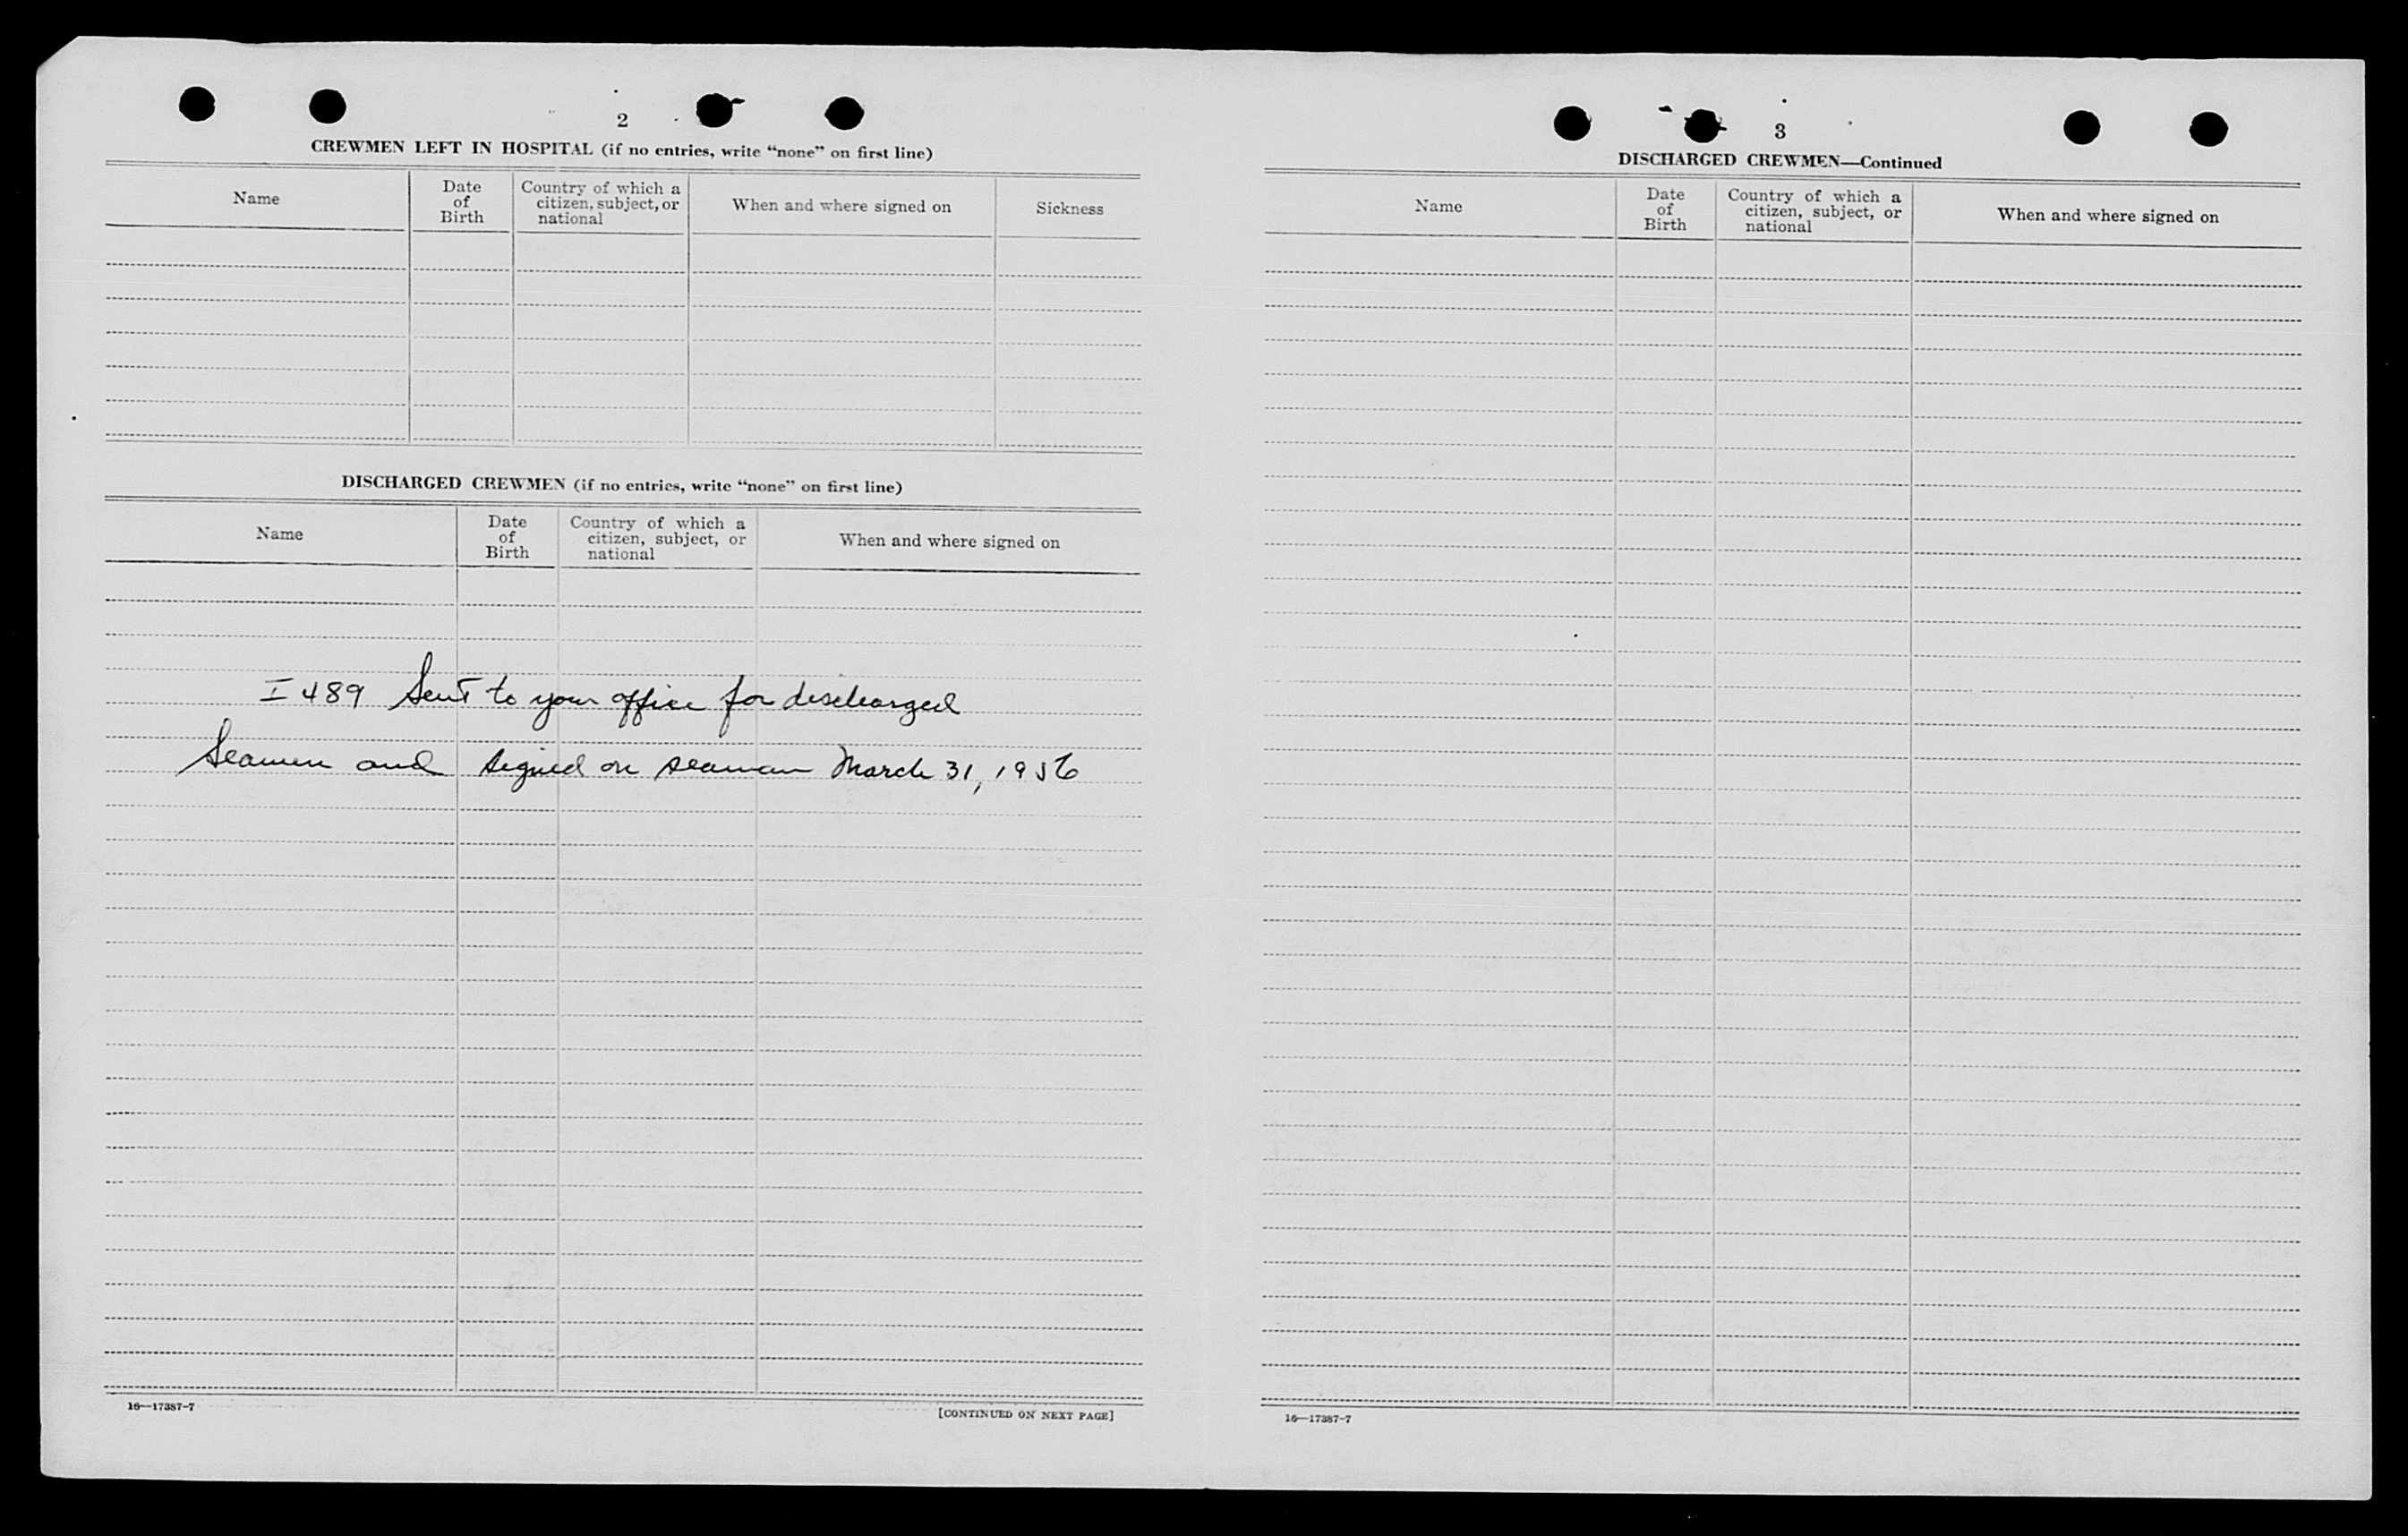 2
CREWMEN LEFT IN HOSPITAL (if no entries, write “none” on first line)
Name
Date of Birth
Country of which a citizen, subject, or national
When and where signed on
Sickness
DISCHARGED CREWMEN (if no entries, write “none” on first line)
Name
Date of Birth
Country of which a citizen, subject, or national
When and where signed on
I 489 Sent to your office for discharged
Seamen and signed on seaman March 31, 1956
16—17387-7
[CONTINUED ON NEXT PAGE]
3
DISCHARGED CREWMEN—Continued
Name
Date of Birth
Country of which a citizen, subject, or national
When and where signed on
16—17387-7